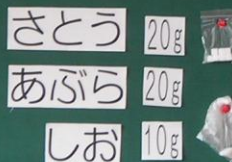 さとう 20g
あぶら 20g
しお 10g